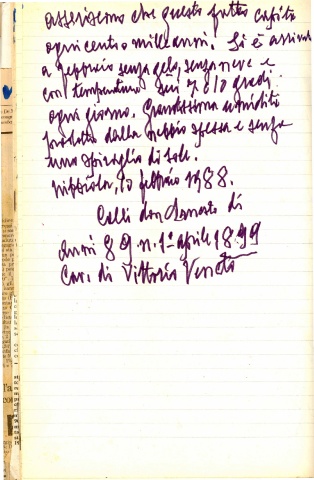 asseriscono che questo fatto capita
ogni cento mille anni. Si è arrivati
a febbraio senza gelo, senza neve e
con temperatura sui 7 8 10 gradi
ogni giorno. Grandissima umidità
prodotta dalla nebbia spessa e senza
uno spiraglio di sole.
Nibbiola, 10 febbraio 1988.
Colli don Onorato di
Anni 89. n. 1° aprile 1899
Cav. di Vittorio Veneto